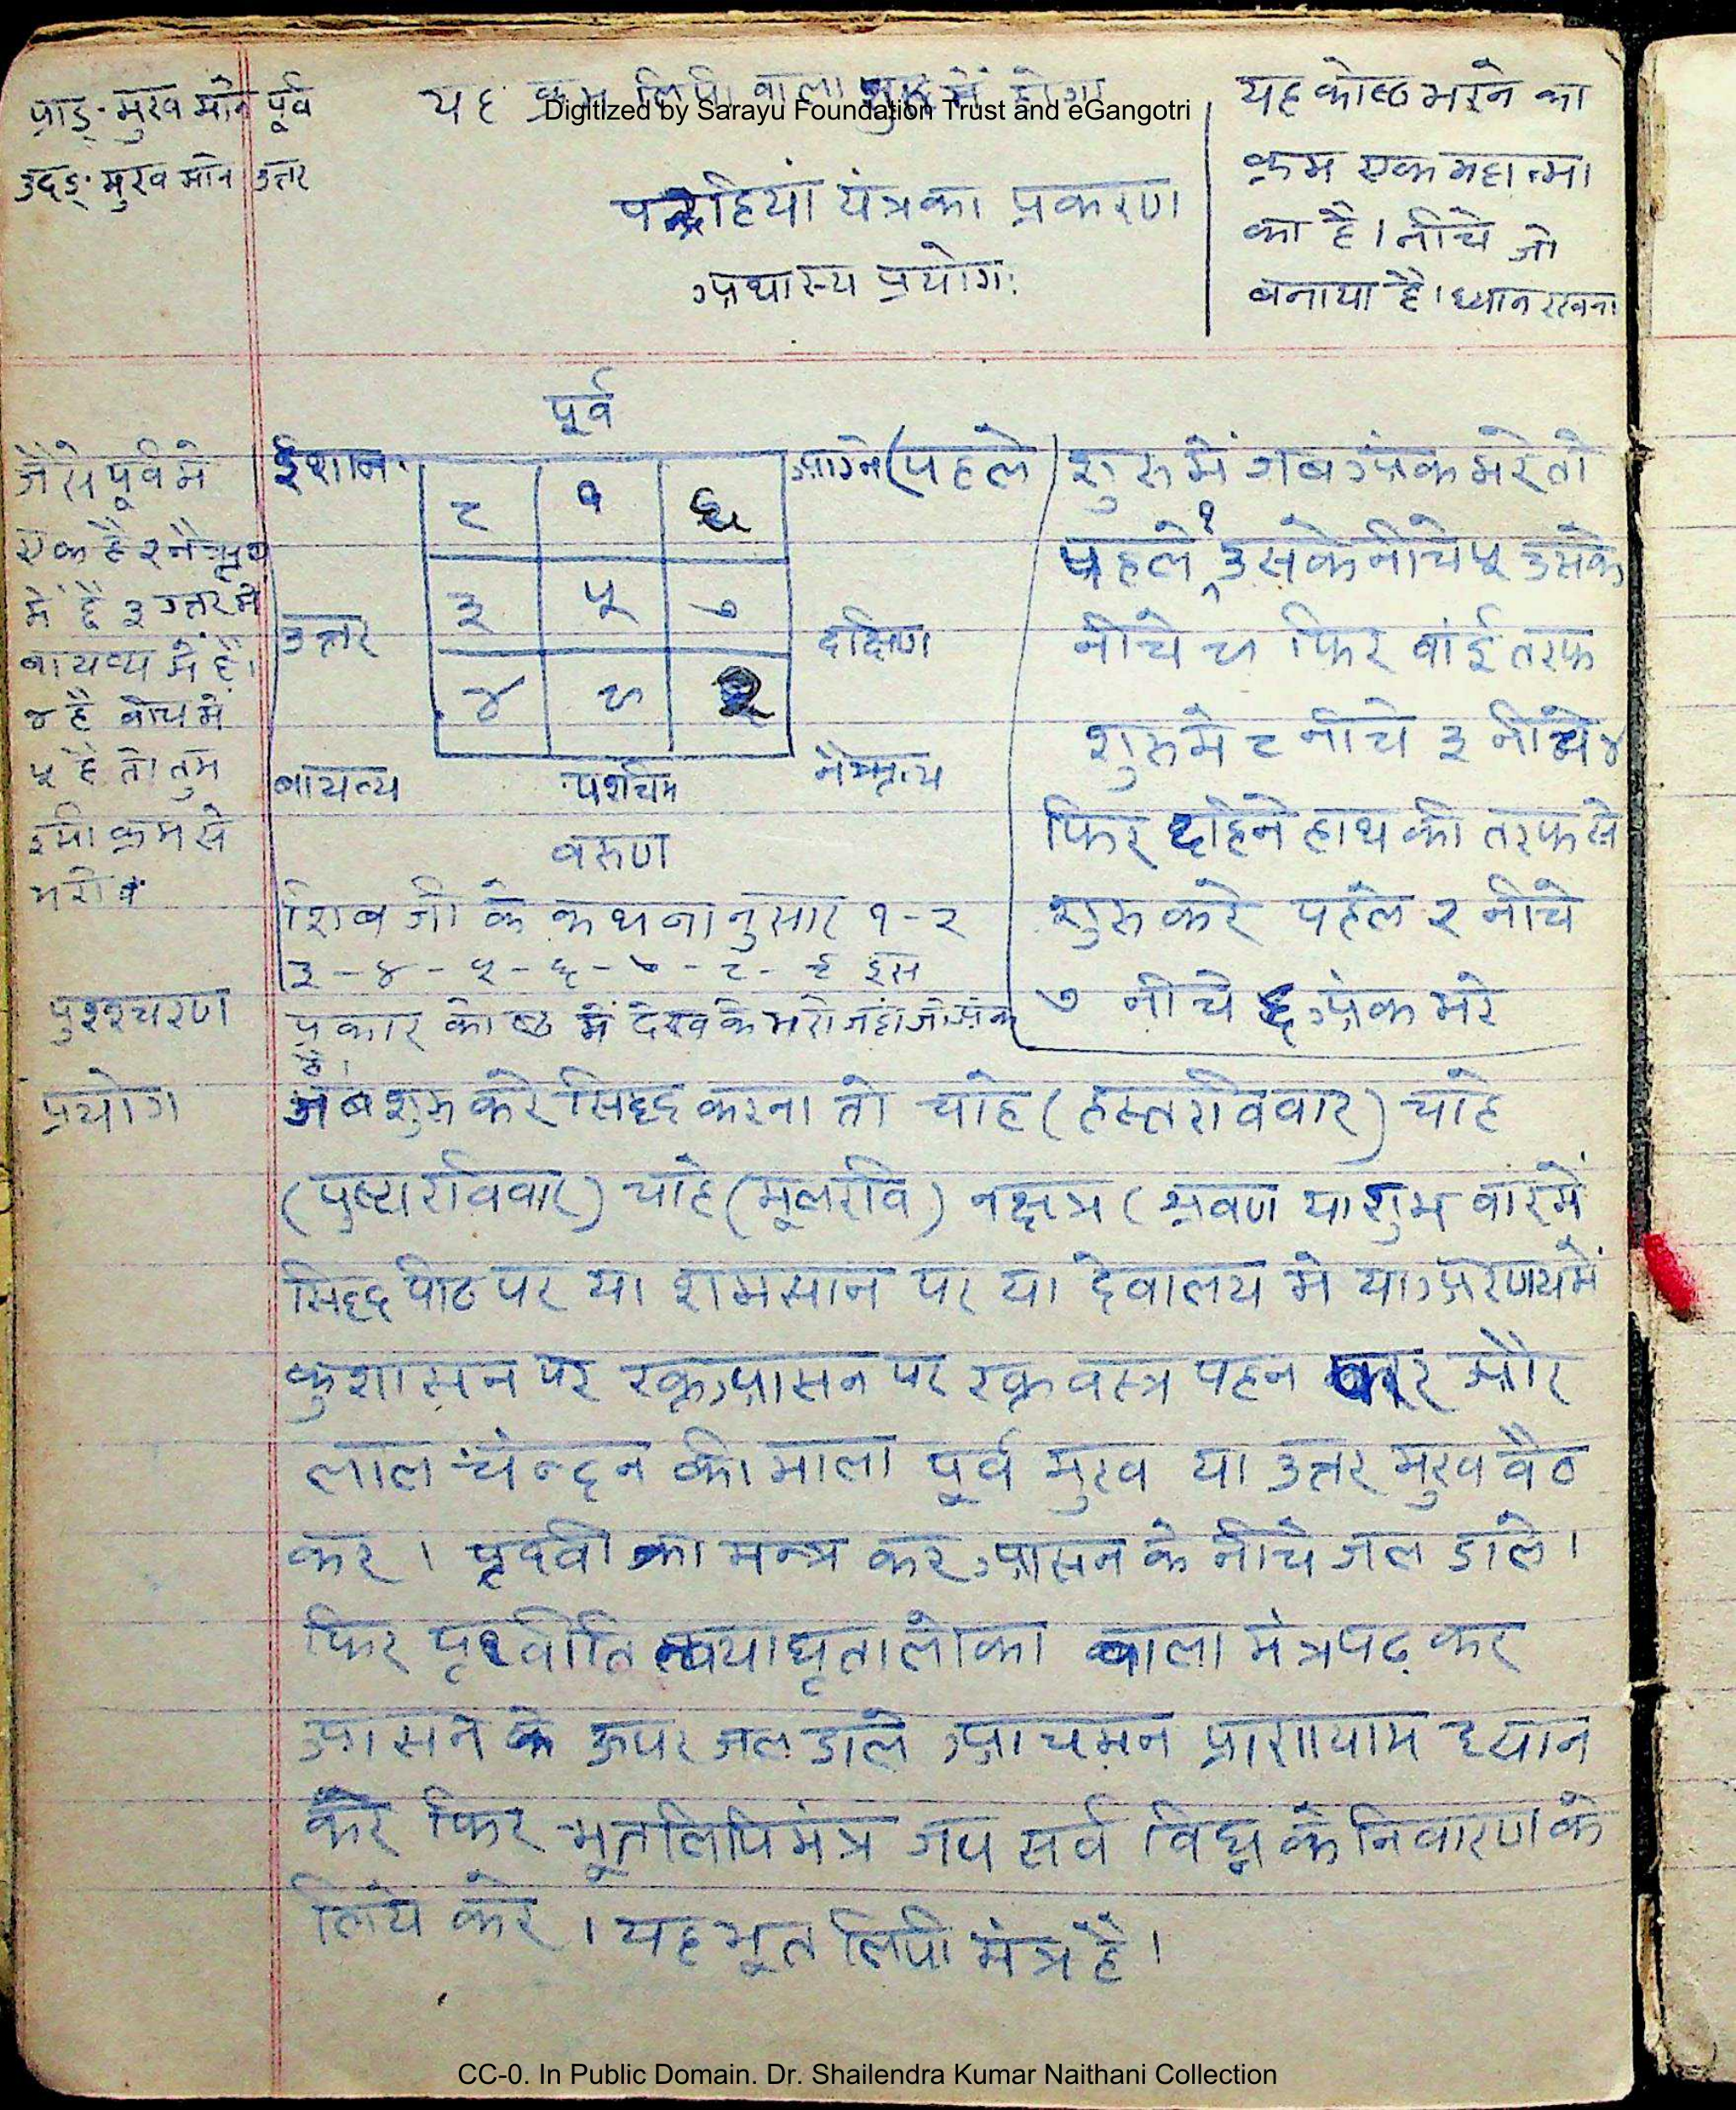 प्राङ्-मुख माने पूर्व
उदङ्-मुख माने उत्तर
यह क्रम लिपी वाला शुरू में होगा
Digitized by Sarayu Foundation Trust and eGangotri
पन्द्रहियां यंत्र का प्रकरण
अथास्य प्रयोगः
यह कोष्ठ भरने का
क्रम एक महात्मा
का है। नीचे जो
बनाया है। ध्यान रखना
पूर्व
ईशान
आग्ने
८ १ ६
३ ५ ७
४ ९ २
उत्तर
दक्षिण
वायव्य
पश्चिम
नैऋत्य
वरुण
जैसे पूर्व में
एक है २ नैऋत्य
में है ३ उत्तर में
वायव्य में है।
४ है बीच में
५ है तो तुम
इसी क्रम से
भरो
(पहले) शुरु में जब अंक भरे तो
पहले १ उसके नीचे ५ उसके
नीचे ९ फिर बांई तरफ
शुरु मे ८ नीचे ३ नीचे ४
फिर दाहिने हाथ की तरफ से
शुरु करे पहले २ नीचे
७ नीचे ६ अंक भरे
शिव जी के कथनानुसार १-२
३-४-५-६-७-८-९ इस
प्रकार कोष्ठ में देख के भरो जहां जो अंक
है।
पुरश्चरण
प्रयोग
जब शुरु करे सिद्ध करना तो चाहे (हस्तरविवार) चाहे
(पुष्यरविवार) चाहे (मूलरवि) नक्षत्र (श्रवण या शुभ वार में
सिद्ध पीठ पर या शमसान पर या देवालय मे या अरण्य में
कुशासन पर रक्त आसन पर रक्त वस्त्र पहन कर और
लाल चन्दन की माला पूर्व मुख या उत्तर मुख बैठ
कर। पृथ्वी का मन्त्र कर आसन के नीचे जल डाले।
फिर पृथ्वीति त्वयाधृता लोका वाला मंत्र पढ़ कर
आसन के ऊपर जल डाले आचमन प्राणायाम ध्यान
करे फिर भूतलिपि मंत्र जप सर्व विघ्न के निवारण के
लिये करे। यह भूत लिपी मंत्र है।
CC-0. In Public Domain. Dr. Shailendra Kumar Naithani Collection